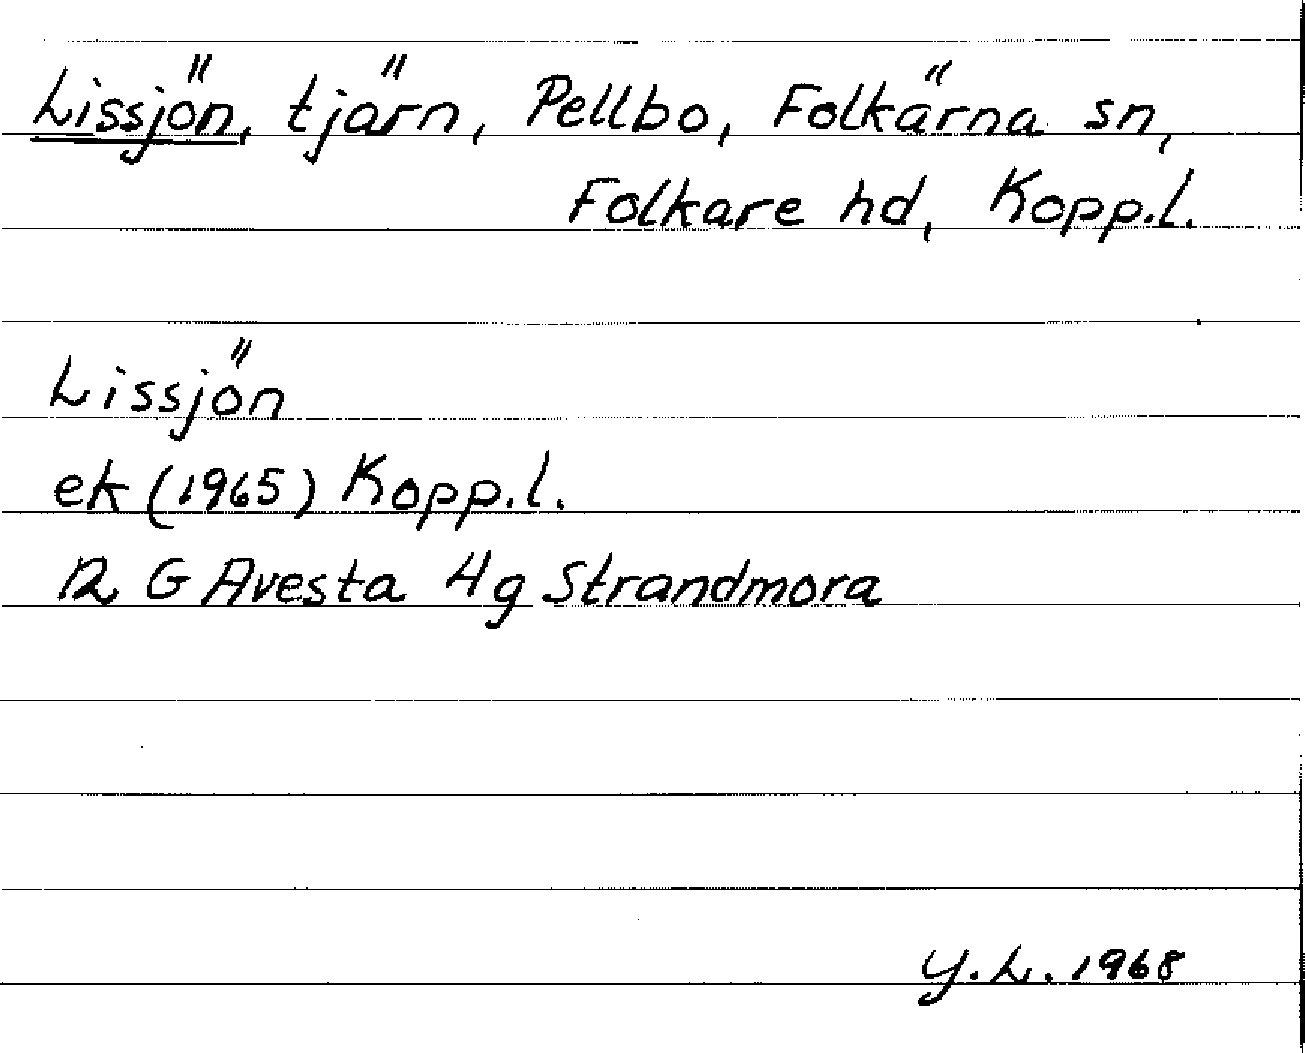 Lissjön, tjärn, Pellbo, Folkärna sn,
Folkare hd, Kopp.l.
Lissjön
ek (1965) Kopp.l.
12 G Avesta 4g Strandmora
Y.L. 1968